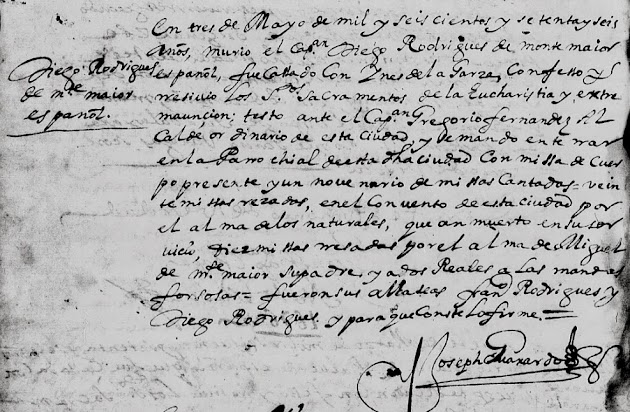 En tres de Mayo de mil y seis cientos y setenta y seis
años, murio el Capan Diego Rodrigues de monte maior
español, fue Cassado Con Ynes de la Garza, Confesso y
Diego Rodrigues
resivio los Stos SaCramentos de la Eucharistia y extre
de mte maior
maunCion; testo ante el Capan Gregorio fernandez Al
español.
Calde ordinario de esta Ciudad, y se mando enterrar
en la Parrochial de esta dha ciudad Con missa de Cuer
po presente y un novenario de missas Cantadas = vein
te missas rezadas, en el Convento de esta ciudad por
el alma de los naturales, que an muerto en su ser
vicio, diez missas resadas por el alma de Miguel
de mte maior su padre, y a dos Reales a Las mandas
forsosas = fueron sus albaseas Franco Rodrigues y
Diego Rodrigues. y para que Conste Lo firme =
Joseph Guaxardo